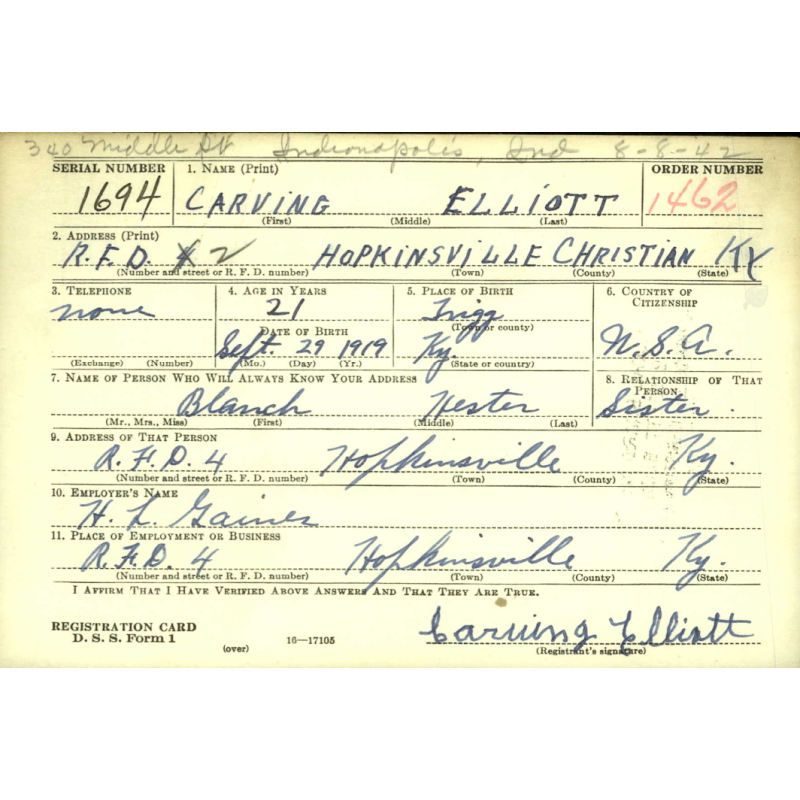 340 Middle St Indianapolis, Ind 8-8-42
SERIAL NUMBER 1. NAME (Print) ORDER NUMBER
1694 CARVING ELLIOTT 1462
(First) (Middle) (Last)
2. ADDRESS (Print)
R.F.D. 2 HOPKINSVILLE CHRISTIAN KY
(Number and street or R. F. D. number) (Town) (County) (State)
3. TELEPHONE 4. AGE IN YEARS 5. PLACE OF BIRTH 6. COUNTRY OF CITIZENSHIP
none 21 Trigg
(Town or county)
DATE OF BIRTH
Sept. 29 1919 Ky. U.S.A.
(Exchange) (Number) (Mo.) (Day) (Yr.) (State or country)
7. NAME OF PERSON WHO WILL ALWAYS KNOW YOUR ADDRESS 8. RELATIONSHIP OF THAT PERSON
Blanch Hester Sister.
(Mr., Mrs., Miss) (First) (Middle) (Last)
9. ADDRESS OF THAT PERSON
R.F.D. 4 Hopkinsville Ky.
(Number and street or R. F. D. number) (Town) (County) (State)
10. EMPLOYER'S NAME
H. L. Gaines
11. PLACE OF EMPLOYMENT OR BUSINESS
R.F.D. 4 Hopkinsville Ky.
(Number and street or R. F. D. number) (Town) (County) (State)
I AFFIRM THAT I HAVE VERIFIED ABOVE ANSWERS AND THAT THEY ARE TRUE.
REGISTRATION CARD
D. S. S. Form 1 (over) 16—17105 Carving Elliott
(Registrant's signature)